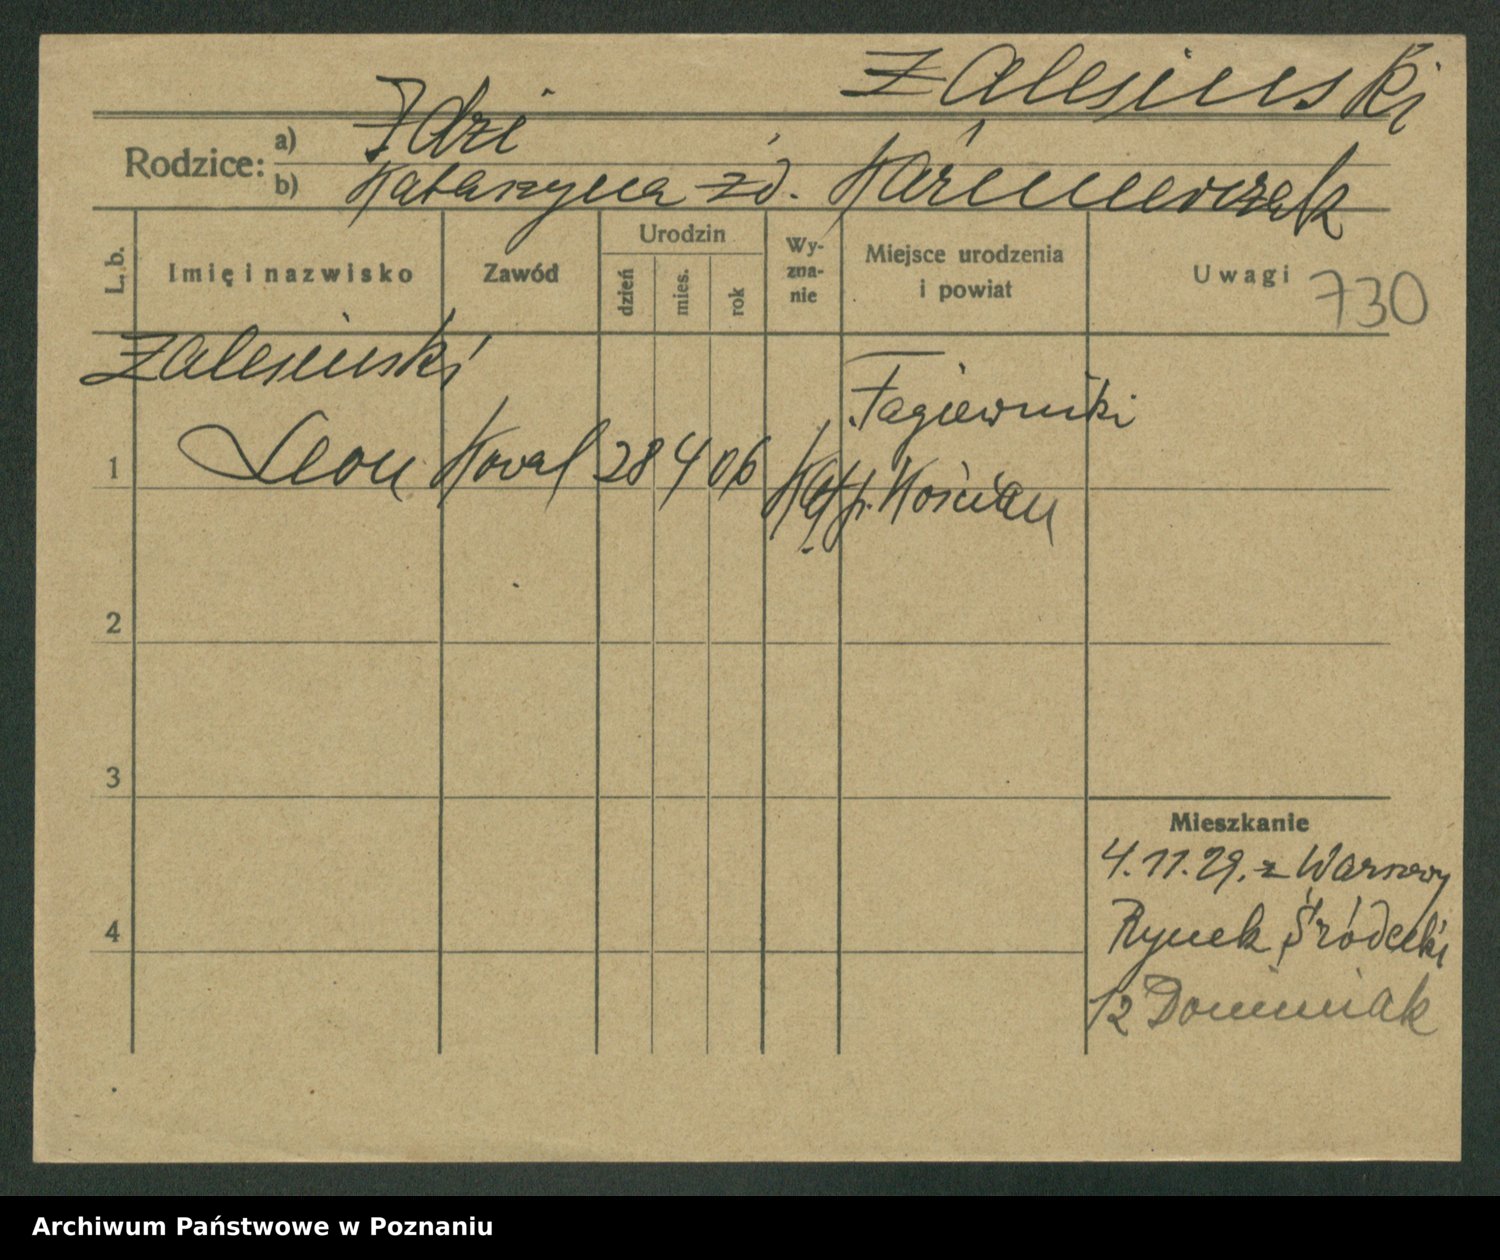 Zalesiński
Rodzice: a) Idzi
b) Katarzyna zd. Kaźmierczak
L. b.
Imię i nazwisko
Zawód
Urodzin
dzień
mies.
rok
Wy-
zna-
nie
Miejsce urodzenia
i powiat
Uwagi 730
Zalesiński
Łagiewniki
1 Leon Kowal 28 4 06 Kat p. Kościan
2
3
Mieszkanie
4.11.29. z Warszawy
4
Rynek Śródecki
12 Dominiak
Archiwum Państwowe w Poznaniu